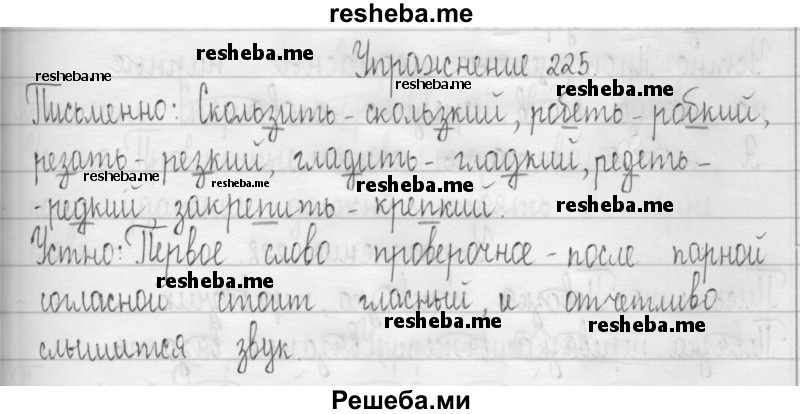 resheba.me
Упражнение 225.
resheba.me
resheba.me
resheba.me
resheba.me
Письменно: Скользить - скользкий, робеть - робкий,
резать - резкий, гладить - гладкий, редеть -
resheba.me
resheba.me
resheba.me
- редкий закрепить - крепкий.
resheba.me
Устно: Первое слово проверочное - после парной
resheba.me
согласной стоит гласный, и отчетливо
resheba.me
resheba.me
слышится звук.
Решеба.ми